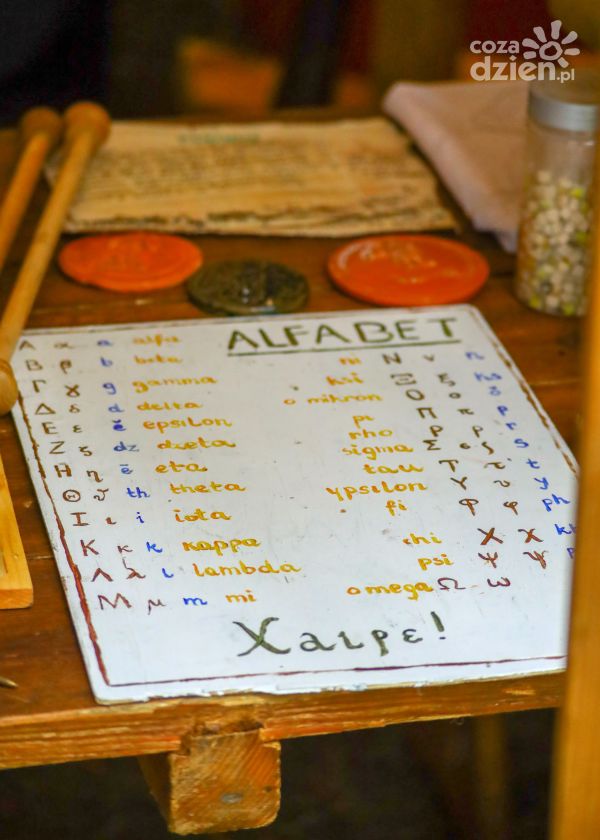 coza
dzien.pl
ALFABET
Α α a alfa
Β β b beta
Γ γ g gamma
Δ δ d delta
Ε ε ĕ epsilon
Ζ ζ dz dzeta
Η η ē eta
Θ ϑ th theta
Ι ι i iota
Κ κ k kappa
Λ λ l lambda
Μ μ m mi
ni Ν ν n
ksi Ξ ξ ks
o mikron Ο ο ŏ
pi Π π p
rho Ρ ρ r
sigma Σ σ ς s
tau Τ τ t
ypsilon Υ υ y
fi Φ φ ph
chi Χ χ
psi Ψ ψ
omega Ω ω
Χαιρε!